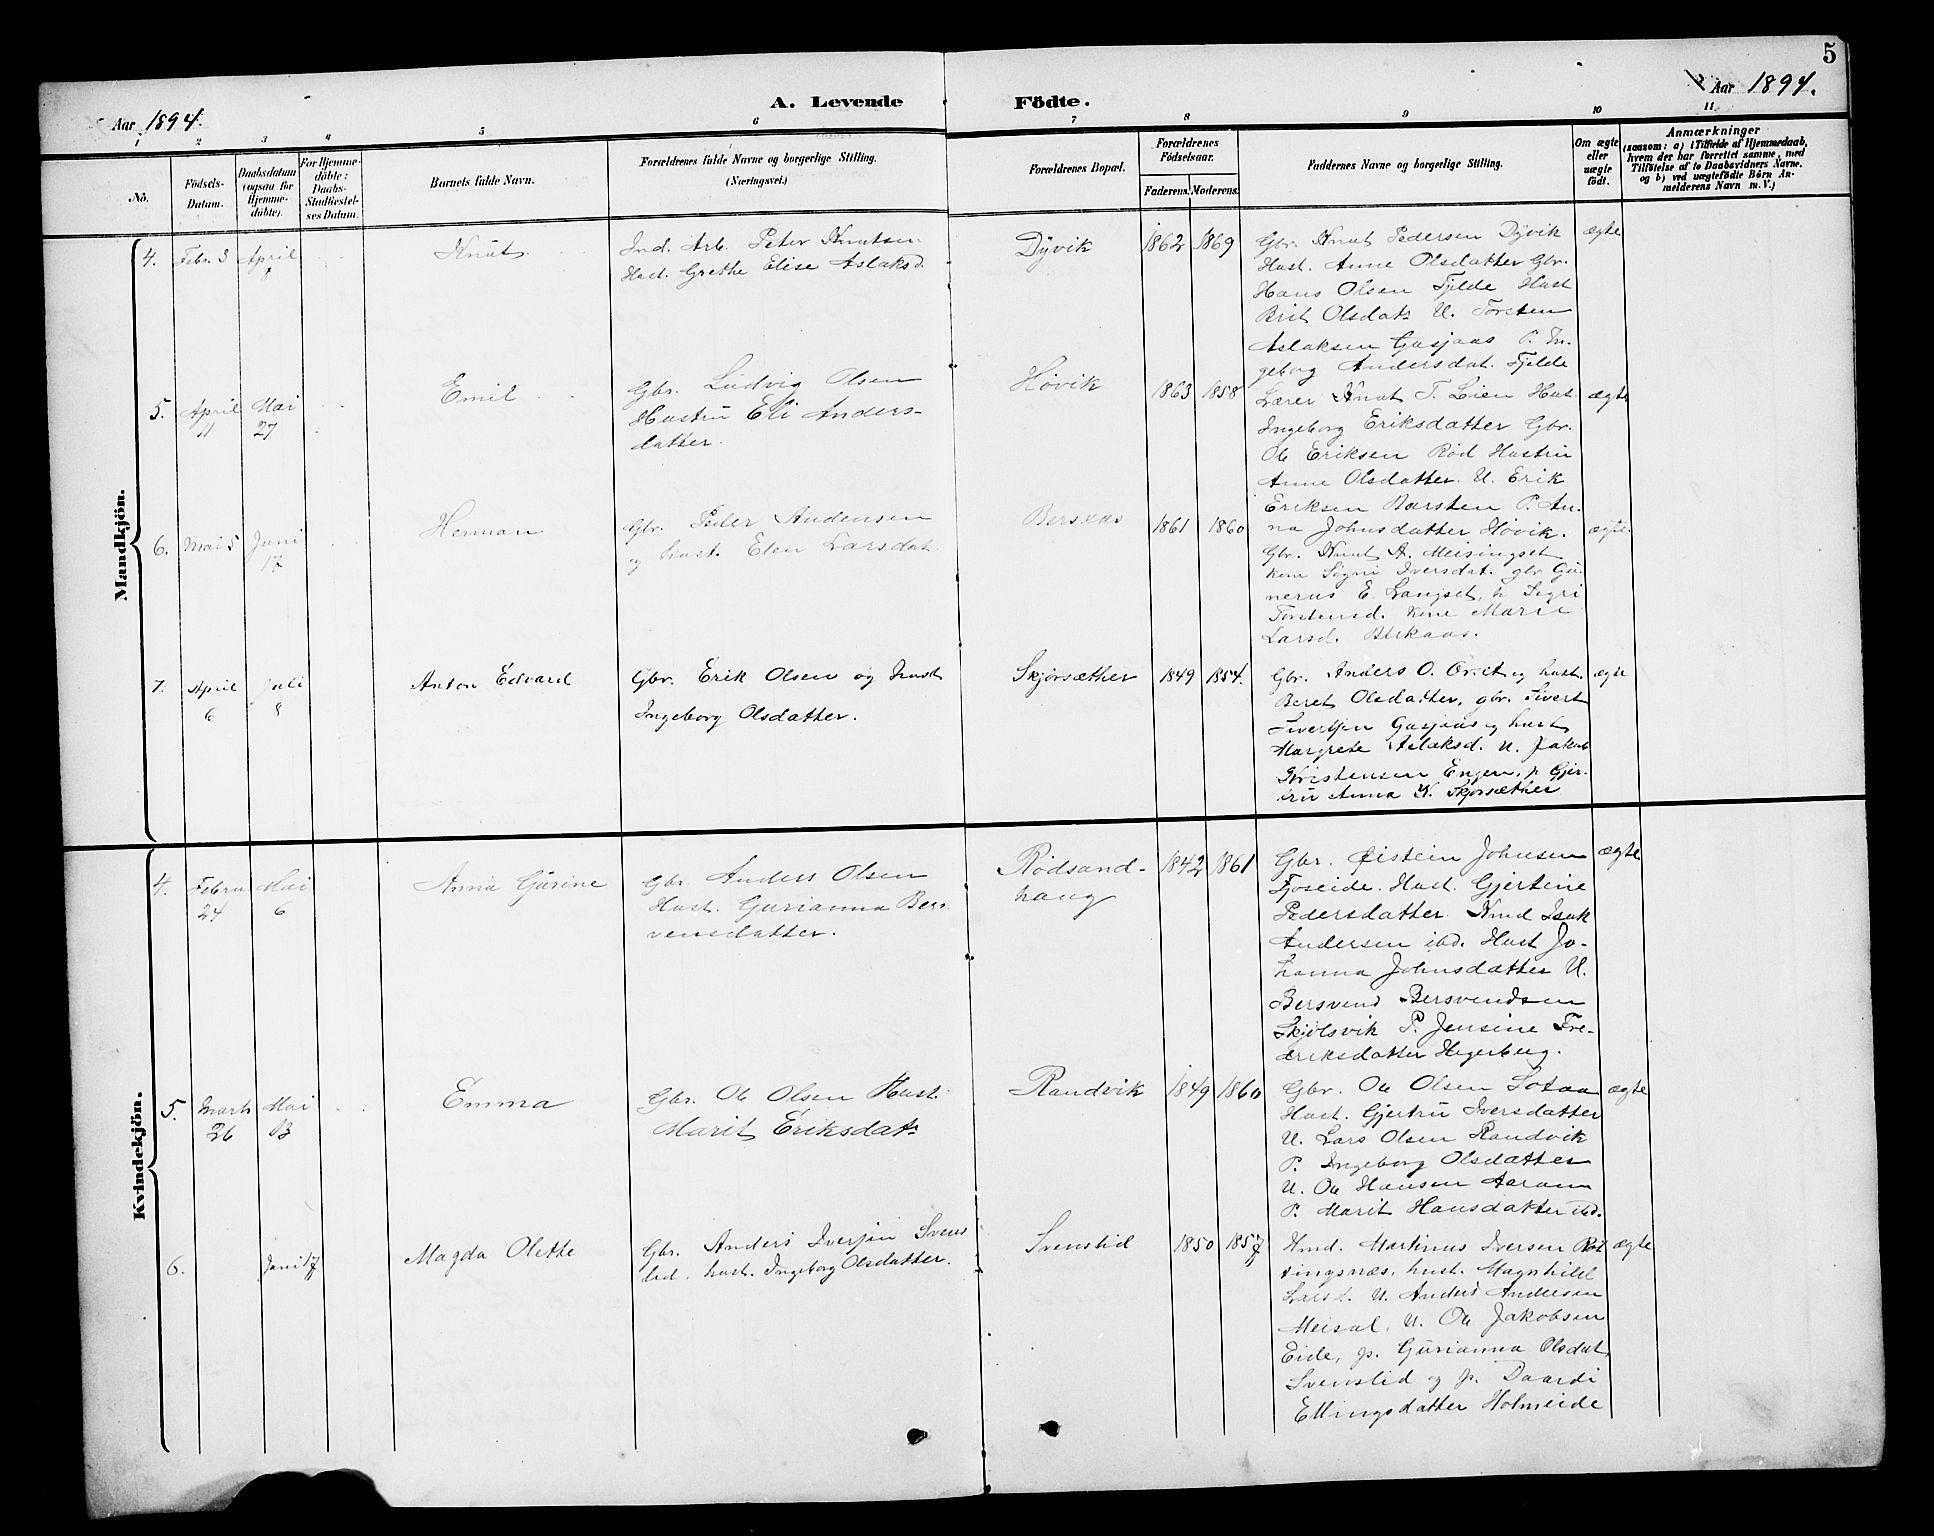 5
Aar 1894.
A. Levende Födte.
Aar 1894.
1 2 3 4 5 6 7 8 9 10 11
No.
Födsels-
Datum.
Daabsdatum
(ogsaa for
Hjemme-
döbte).
For Hjemme-
döbte:
Daabs-
Stadfæstel-
ses Datum.
Barnets fulde Navn.
Forældrenes fulde Navne og borgerlige Stilling.
(Næringsvei.)
Forældrenes Bopæl.
Forældrenes
Födselsaar.
Faderens. Moderens.
Faddernes Navne og borgerlige Stilling.
Om ægte
eller
uægte
födt.
Anmærkninger
(saasom: a) i Tilfælde af Hjemmedaab,
hvem der har forrettet samme, med
Tilföielse af to Daabsvidners Navne.
og b) ved uægtefödte Börn An-
melderens Navn m. V.)
Mandkjön.
4. Febr. 3 April
Knut
Ind. Arb. Peter Knutsen
Hust. Grethe Elise Aslaksd.
Dÿvik
1862 1869
Gbr. Knut Pedersen Dÿvik
Hust. Anne Olsdatter Gbr.
Hans Olsen Fjelde Hust
Brit Olsdatr U. Torsten
Aslaksen Gasjaas P. In-
geborg Andersdat. Fjelde
ægte
5. April 11 Mai 27
Emil
Gbr. Ludvig Olsen
Hustru Eli Anders-
datter.
Høvik
1863 1858
Lærer Knut T. Loien Hust
Ingeborg Eriksdatter Gbr.
Ole Eriksen Rød Hustru
Anne Olsdatter. U. Erik
Eriksen Varsten P. An-
na Johnsdatter Høvik.
ægte
6. Mai 5 Juni 17
Herman
Gbr. Peder Andersen
og hust. Elen Larsdat.
Bersaas
1861 1860
Gbr. Knut A. Meisingset
kone Signi Iversdat. gbr. Gu-
nerus E. Langset, h. Sigri
Torstensd. kone Marie
Larsd. Birkaas.
ægte.
7. April 6 Juli 8
Anton Edvard
Gbr. Erik Olsen og Hust
Ingeborg Olsdatter.
Skjørsæther
1849 1854.
Gbr. Anders O. Orset og hust.
Beret Olsdatter, gbr. Sivert
Sivertsen Gasjaas og hust
Margrete Aslaksd. U. Jakob
Kristensen Engen, p. Gjer-
tru Anna K. Skjørsæther
ægte
Kvindekjön.
4. Febru 24 Mai 6
Anna Gurine
Gbr. Anders Olsen
Hust. Gurianna Bers
vensdatter.
Rødsand-
haug
1842 1861
Gbr. Øistein Johnsen
Fjoseide. Hust. Gjertine
Pedersdatter. Kmd Isak
Andersen ibd. Hust Jo-
hanna Johnsdatter U.
Bersvend Bersvendsen
Skjølsvik P. Jensine Fre-
deriksdatter Hegerberg.
ægte
5. Marts 26 Mai 13
Emma
Gbr. Ole Olsen Hust.
Marit Eriksdatr
Randvik
1849 1860
Gbr. Ole Olsen Sotaa
Hust. Gjertru Iversdatter
U. Lars Olsen Randvik
P. Ingeborg Olsdatter
U. Ole Hansen Aaram
P. Marit Hansdatter ibd.
ægte
6. Juni 17
Magda Olette
Gbr. Anders Iversen Svens
lid. hust. Ingeborg Olsdatter.
Svenslid
1850 1857
Hmd. Martinus Iversen Rot
tingsnæs, hust. Magnhild
Larsd. U. Anders Andersen
Meisal, U. Ole Jakobsen
Eide, p. Gurianna Olsdat,
Svenslid og p. Daardi
Ellingsdatter Holmeide
ægte